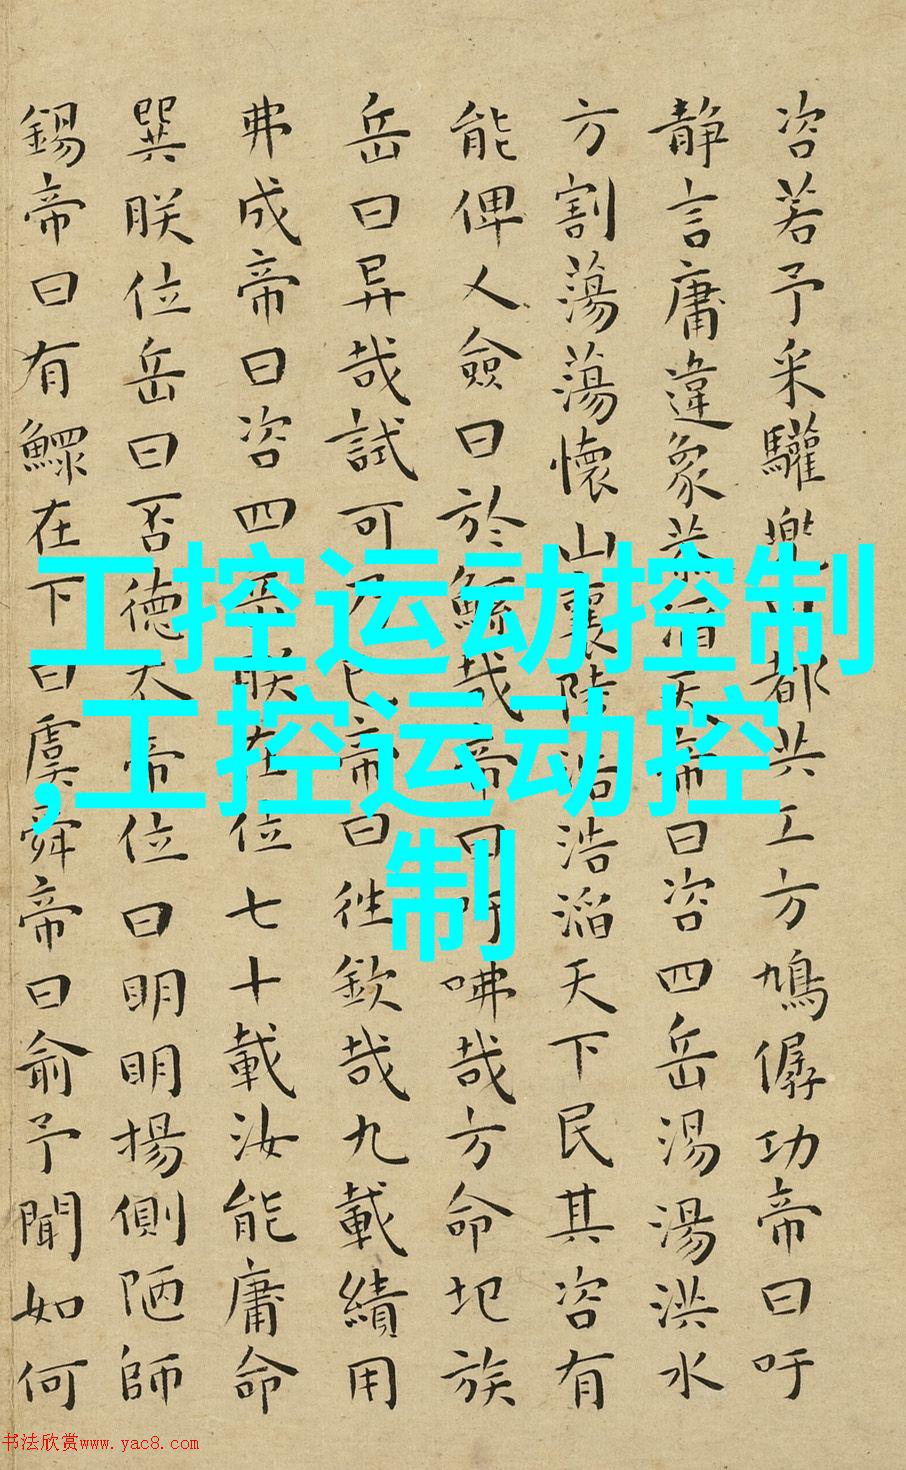 咨若予采驩兜曰都共工方鳩僝功帝曰吁
静言庸違象恭滔天帝曰咨四岳湯湯洪水
方割蕩蕩懷山襄陵浩浩滔天下民其咨有
能俾乂僉曰於鯀哉帝曰吁咈哉方命圮族
岳曰异哉試可乃已帝曰往欽哉九載績用
弗成帝曰咨四岳朕在位七十載汝能庸命
巽朕位岳曰否德忝帝位曰明明揚側陋師
錫帝曰有鰥在下曰虞舜帝曰俞予聞如何
工控运动控制
,工控运动控
制
书法欣赏www.yac8.com